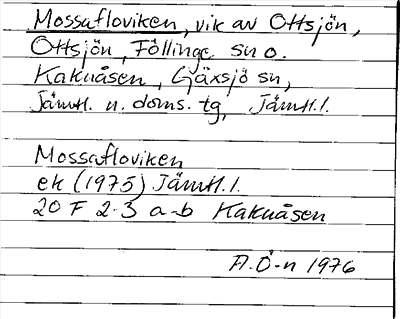 Mossafloviken, vik av Ottsjön,
Ottsjön, Föllinge sn o.
Kakuåsen, Gäxsjö sn,
Jämtl. n. doms. tg, Jämtl. l.
Mossafloviken
ek (1975) Jämtl. l.
20 F 2-3 a-b Kakuåsen
A.Ö-n 1976